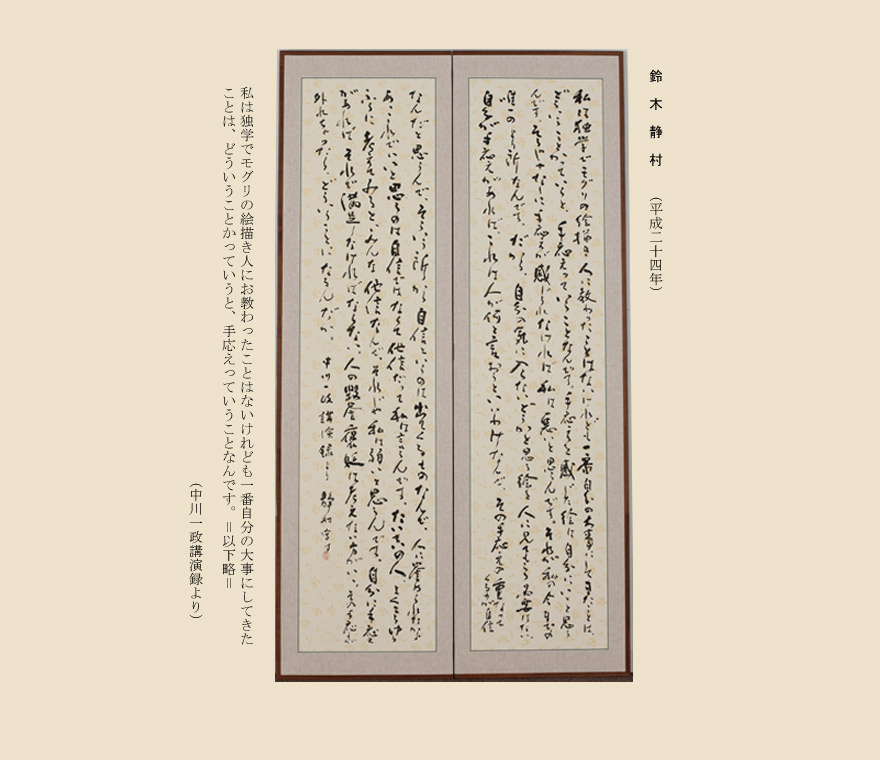 鈴木静村 (平成二十四年)
私は独学でモグリの絵描き人に教わったことはないけれども一番自分の大事にしてきたことは、
どういうことかっていうと、手応えっていうことなんです。手応えを感じた絵は自分にいいと思う
んです。そうじゃなしに手応えが感じられなければ私は悪いと思うんです。それが私の今までの
唯一のより所なんです。だから、自分の気に入らないと思う絵を人に見てもらう必要はない。
自分が手応えがあれば、これは人が何と言おうといいわけなんだ。その手応えの重なって
くるのが自信
なんだと思うんで、そういう所から自信というのは出てくるものなんで、人に誉められたから
あゝこれでいいと思うのは自信ではなくて他信だって私は言うんです。たいていの人、
ふうに考えてみると、みんな他信なんで、それじゃ私は弱いと思うんです。自分に手応え
があれば、それで満足しなければならない。人の毀誉褒貶は考えない方がいい。又手応えが
外れちゃったら、どういうことになるんだか。 中川一政講演録より 静村書
私は独学でモグリの絵描き人にお教わったことはないけれども一番自分の大事にしてきた
ことは、どういうことかっていうと、手応えっていうことなんです。＝以下略＝
(中川一政講演録より)